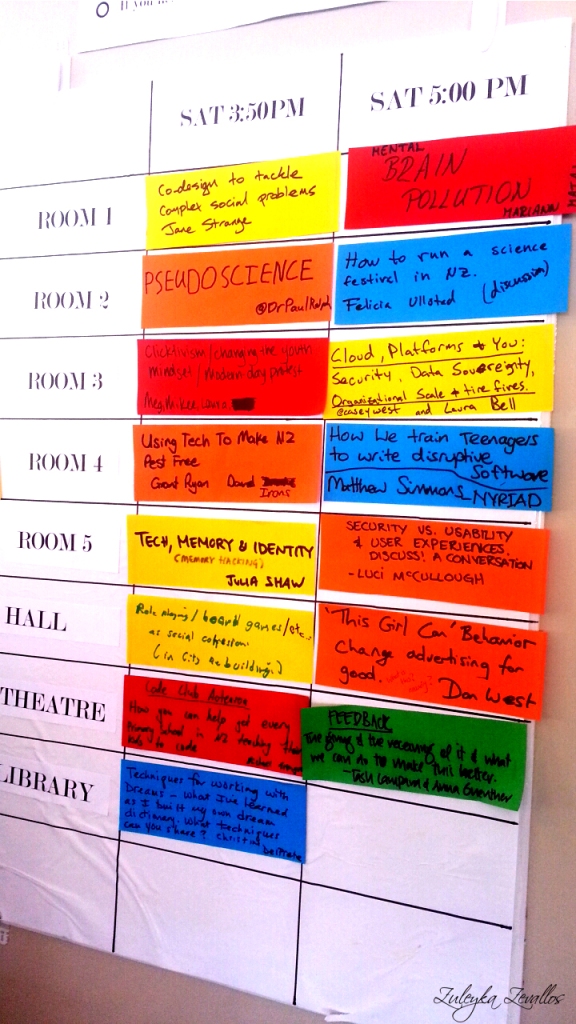 If you
SAT 3:50PM
SAT 5:00 PM
ROOM 1
Co-design to tackle
complex social problems
Jane Strange
MENTAL
BRAIN
POLLUTION
MARIANN
ROOM 2
PSEUDOSCIENCE
@DrPaulRalph
How to run a science
festival in NZ.
(discussion)
Felicia Ulloted
ROOM 3
Clicktivism/changing the youth
mindset/modern day protest
Cloud, Platforms & You:
Security, Data Sovereignity,
Organizational Scale & tire fires.
@caseywest and Laura Bell
ROOM 4
Using Tech To Make NZ
Pest Free
Grant Ryan David
Irons
How We train Teenagers
to write disruptive
Software
Matthew Simmons NYRIAD
ROOM 5
TECH, MEMORY & IDENTITY
(MEMORY HACKING)
JULIA SHAW
SECURITY VS. USABILITY
& USER EXPERIENCES.
DISCUSS! A CONVERSATION
-LUCI McCULLOUGH
HALL
Role playing/board games/etc.
as social cohesion
(in City rebuilding.)
'This Girl Can' Behavior
Change advertising for
good.
Don West
THEATRE
Code Club Aotearoa
How you can help get every
Primary School in NZ teaching their
kids to code
FEEDBACK
The giving & the receiving of it & what
we can do to make this better.
LIBRARY
Techniques for working with
Dreams - What I've learned
as I built my own dream
dictionary. What techniques
can you share? Christina
DesPrete
Zuleyka Zevallos